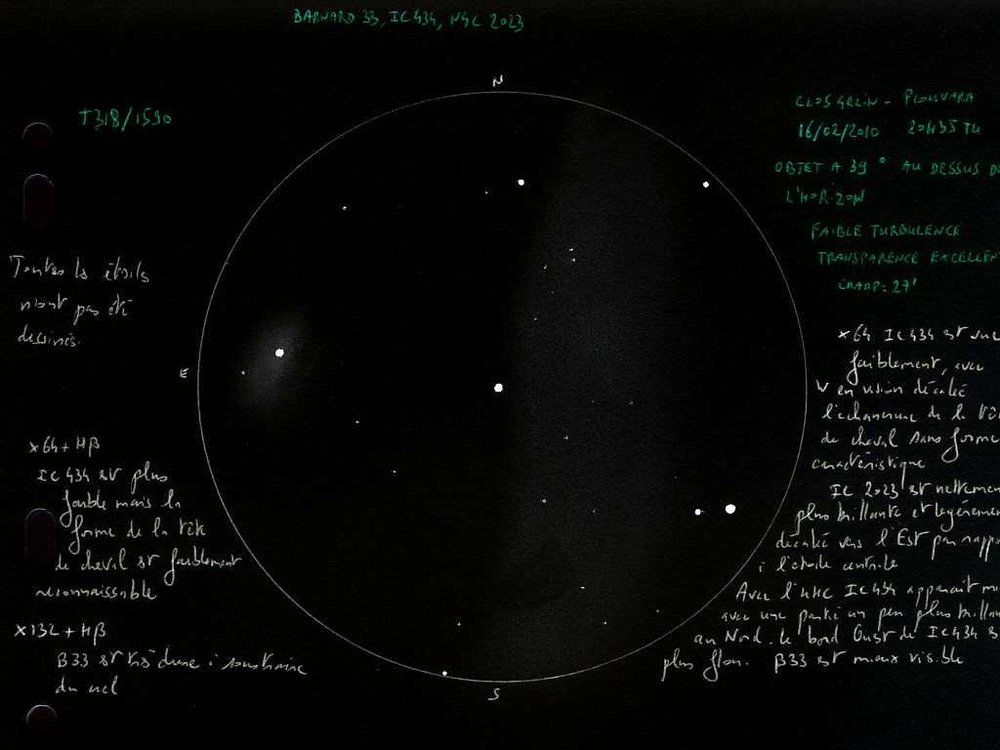 BARNARD 33, IC 434, NGC 2023
N
T318/1590
CLOS GELIN - PLOUVARA
16/02/2010 20H35 TU
OBJET A 39° AU DESSUS DE
L'HORIZON
FAIBLE TURBULENCE
TRANSPARENCE EXCELLEN
CHAMP: 27'
Toutes les étoiles
n'ont pas été
dessinées.
E
W
x64 IC 434 est vue
faiblement, avec
en vision décalée
l'échancrure de la tê
de cheval sans forme
caractéristique
IC 2023 est nettemen
plus brillante et légèremen
décalée vers l'Est par rappo
à l'étoile centrale
Avec l'UHC IC 434 apparait mi
avec une partie un peu plus brillan
au Nord. le bord Ouest de IC 434 es
plus flou. B33 est mieux visible
x64 + Hβ
IC 434 est plus
faible mais la
forme de la tête
de cheval est faiblement
reconnaissable
x132 + Hβ
B33 est très dure à soustraire
du ciel
S